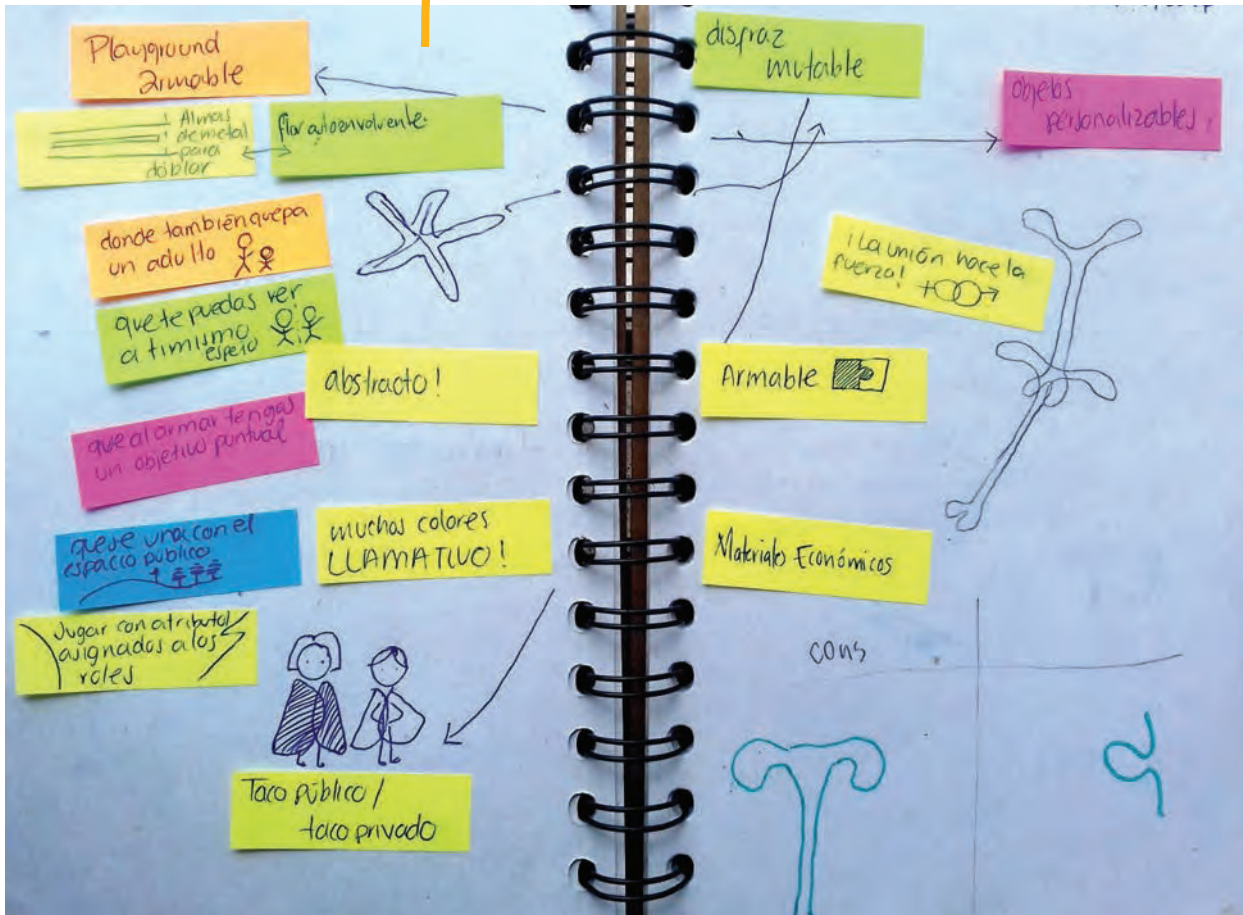 Playground
armable
Almas
de metal
para
doblar
flor autoenvolvente.
donde también quepa
un adulto
que te puedas ver
a ti mismo
espejo
abstracto!
que al armar tengas
un objetivo puntual
que se una con el
espacio público
muchos colores
LLAMATIVO!
Jugar con atributos
asignados a los
roles
Taco público /
taco privado
disfraz
mutable
objetos
personalizables.
¡La unión hace la
fuerza!
Armable
Materiales Económicos
cons